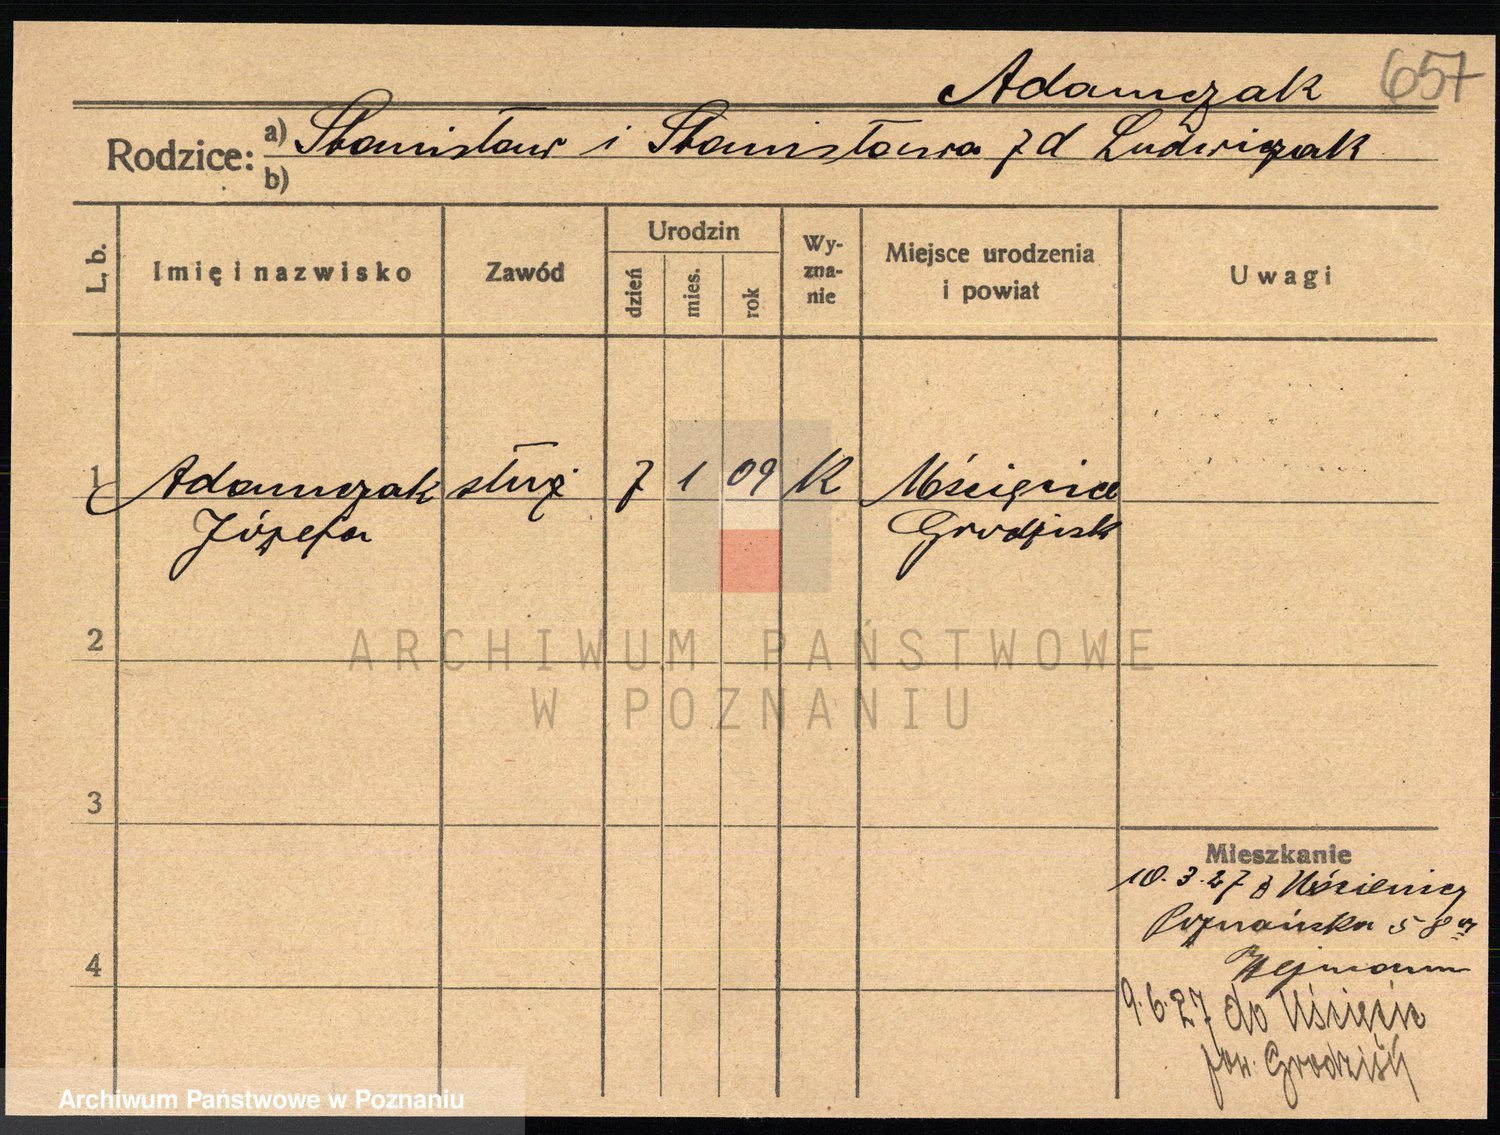 Adamczak 657
Rodzice: a) Stanisław i Stanisława z d Ludwiczak
b)
L. b.
Imię i nazwisko
Zawód
Urodzin
dzień
mies.
rok
Wy-
zna-
nie
Miejsce urodzenia
i powiat
Uwagi
1 Adamczak służ 7 1 09 K Mścięcice
Józefa Grodzisk
2
ARCHIWUM PAŃSTWOWE
W POZNANIU
3
4
Mieszkanie
10.3.27 z
Poznańska 58
Hejmann
9.6.27 do
pow. Grodzisk
Archiwum Państwowe w Poznaniu